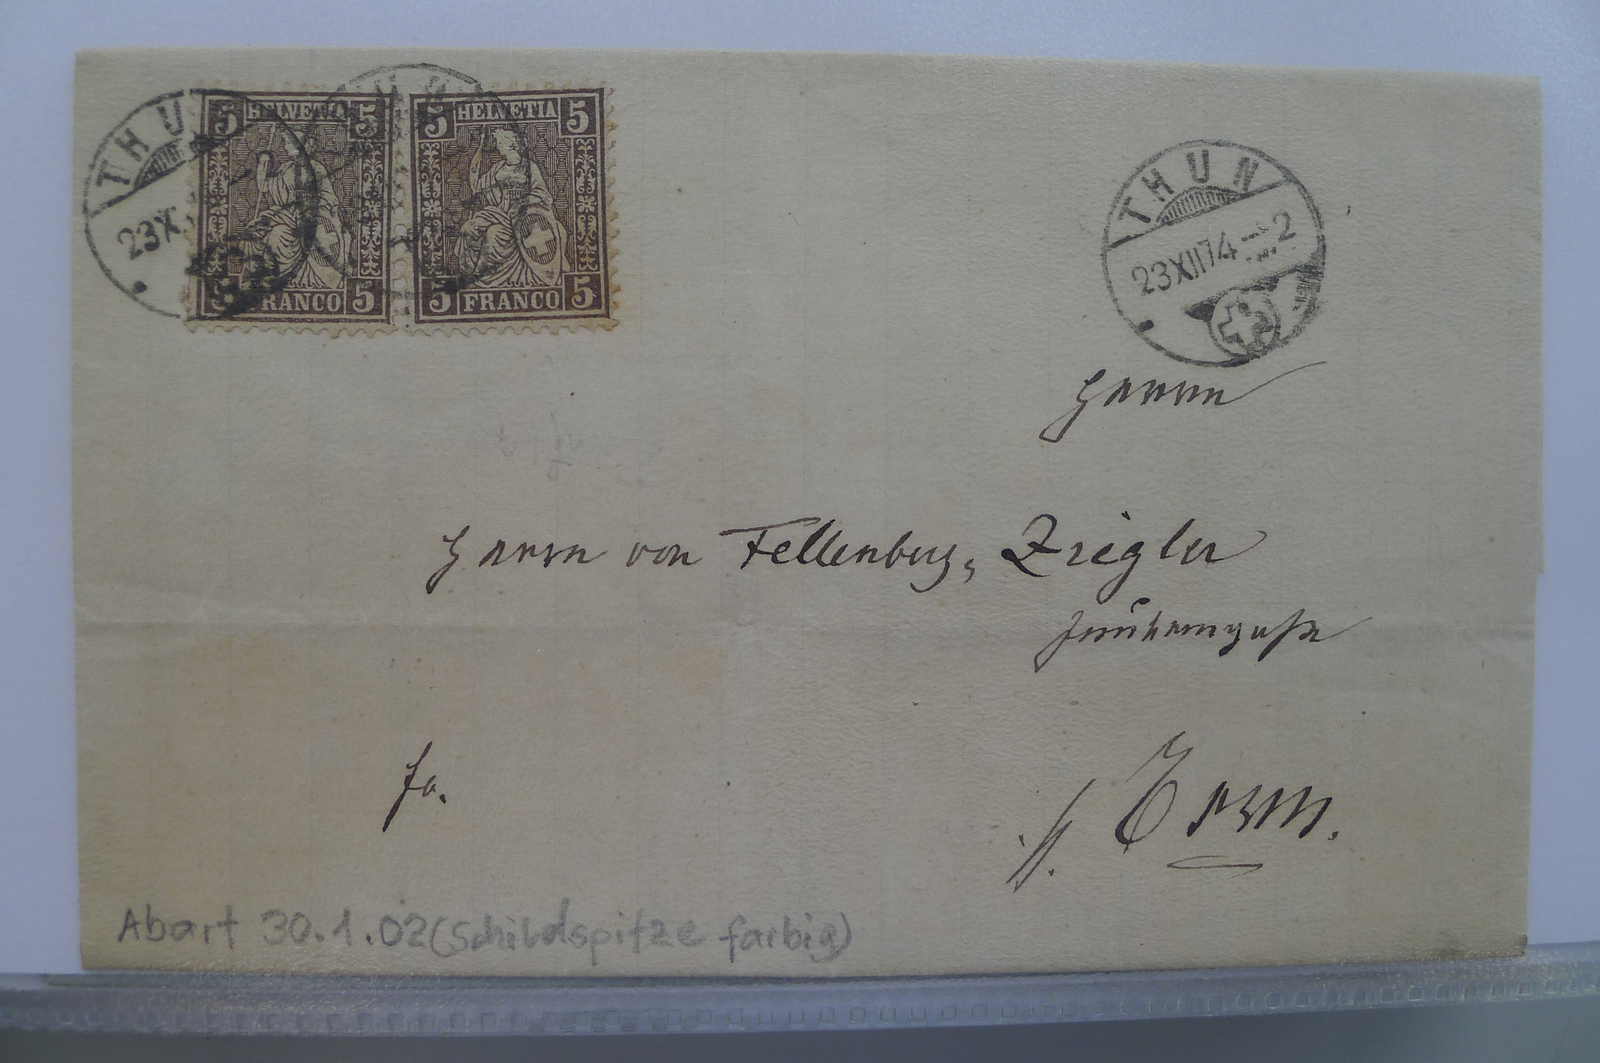 THUN
23XII
5 HELVETIA 5
5 FRANCO 5
5 HELVETIA 5
5 FRANCO 5
THUN
23XII74 2
Herrn
Herrn von Fellenberg, Ziegler
Junkerngasse
fo.
Bern.
Abart 30.1.02 (Schildspitze farbig)